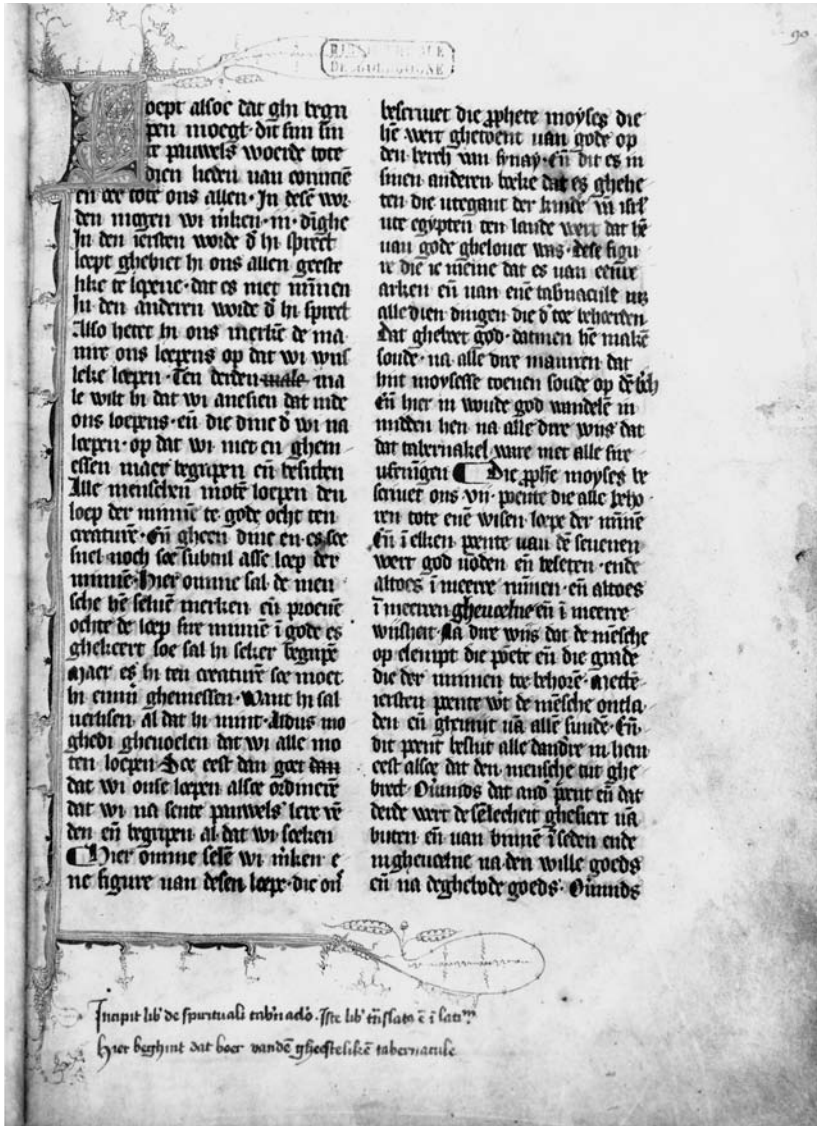 90
BIBLIOTHEQUE
DE BOURGOGNE
Loept alsoe dat ghi begri
pen moegt· dit sijn sin
te pauwels woerde tote
dien lieden van corintiē
en oec tote ons allen· In desē wor
den mogen wi m̄ken· iij· dīghe
In den iersten worde d' hi spreect
loept ghebiet hi ons allen geeste
like te lopene· dat es met mīnen
In den anderen worde d' hi spreect
Also heetet hi ons merkē de ma
nire ons loepens op dat wi wijs
leke loepen· Ten derden male ma
le wilt hi dat wi anesien dat inde
ons loepens· eñ die dinc d' wi na
loepen· op dat wi niet en ghem
essen maer begripen eñ besitten
Alle menschen motē loepen den
loep der mīnnē te gode ocht ten
creaturē· Eñ gheen dinc en es soe
snel noch soe subtijl alse loep der
minnē· Hier omme sal de men
sche hē seluē merken eñ proeuē
ochte de loep sire minnē ī gode es
ghekeert soe sal hi seker begripē
Maer es hi ten creaturē soe moet
hi ēmīn ghemessen· Want hi sal
verlisen al dat hi mint· Aldus mo
ghedi gheuoelen dat wi alle mo
ten loepen Soe eest dan goet dan
dat wi onse loepen alsoe ordinerē
dat wi na sente pauwels' lere rē
den eñ begripen al dat wi soeken
Hier omme selē wi m̄ken e
ne figure van desen loepe· die on̄s
bescriuet die p̄phete moyses die
hē wert ghetoent van gode op
den berch van synay· Eñ dit es in
sinen anderen boeke dat es ghehe
ten die utegant der kinde vā isrl'
ute egypten ten lande wert dat hē
van gode ghelouet was· dese figu
re die ic meine dat es van eenre
arken eñ van enē tab'nacule mz
alle dien dingen die d' toe behoerden
Dat gheboet god· datmen hē makē
soude· na alle dire maniren dat
hijt moysesse toenen soude op dē b'ch
Eñ hier in woude god wandelē in
midden hen na alle dire wijs dat
dat tabernakel ware met alle sire
uisieringen Die p̄phē moyses be
scriuet ons vij· pointe die alle beho
ren tote enē wisen loepe der mīnē
Eñ ī elken pointe van dē seuenen
wert god uōden eñ beseten· ende
altoes ī meerre mīnen· eñ altoes
ī meerren gheuoelne eñ ī meerre
wijsheit· Na dire wijs dat de mēsche
op clempt die pōēte eñ die grade
die der minnen toe behorē· Metdē
iersten pointe w't de mēsche ontla
den eñ ghereinit vā allē sundē· Eñ
dit point besluut alle dandre in hem
eest alsoe dat den mensche niit ghe
brect· Ouīmids dat and' point eñ dat
derde wert de sēlecheit ghesiert vā
buten eñ van binnē ī seden ende
in gheuoelne na den wille goeds
eñ na deghebode goeds· Ouīmids
Incipit lib' de spirituali tab'naclo· Iste lib' trāslatꝰ ē ī latinū
Hier beghint dat boec vandē gheestelikē tabernacule